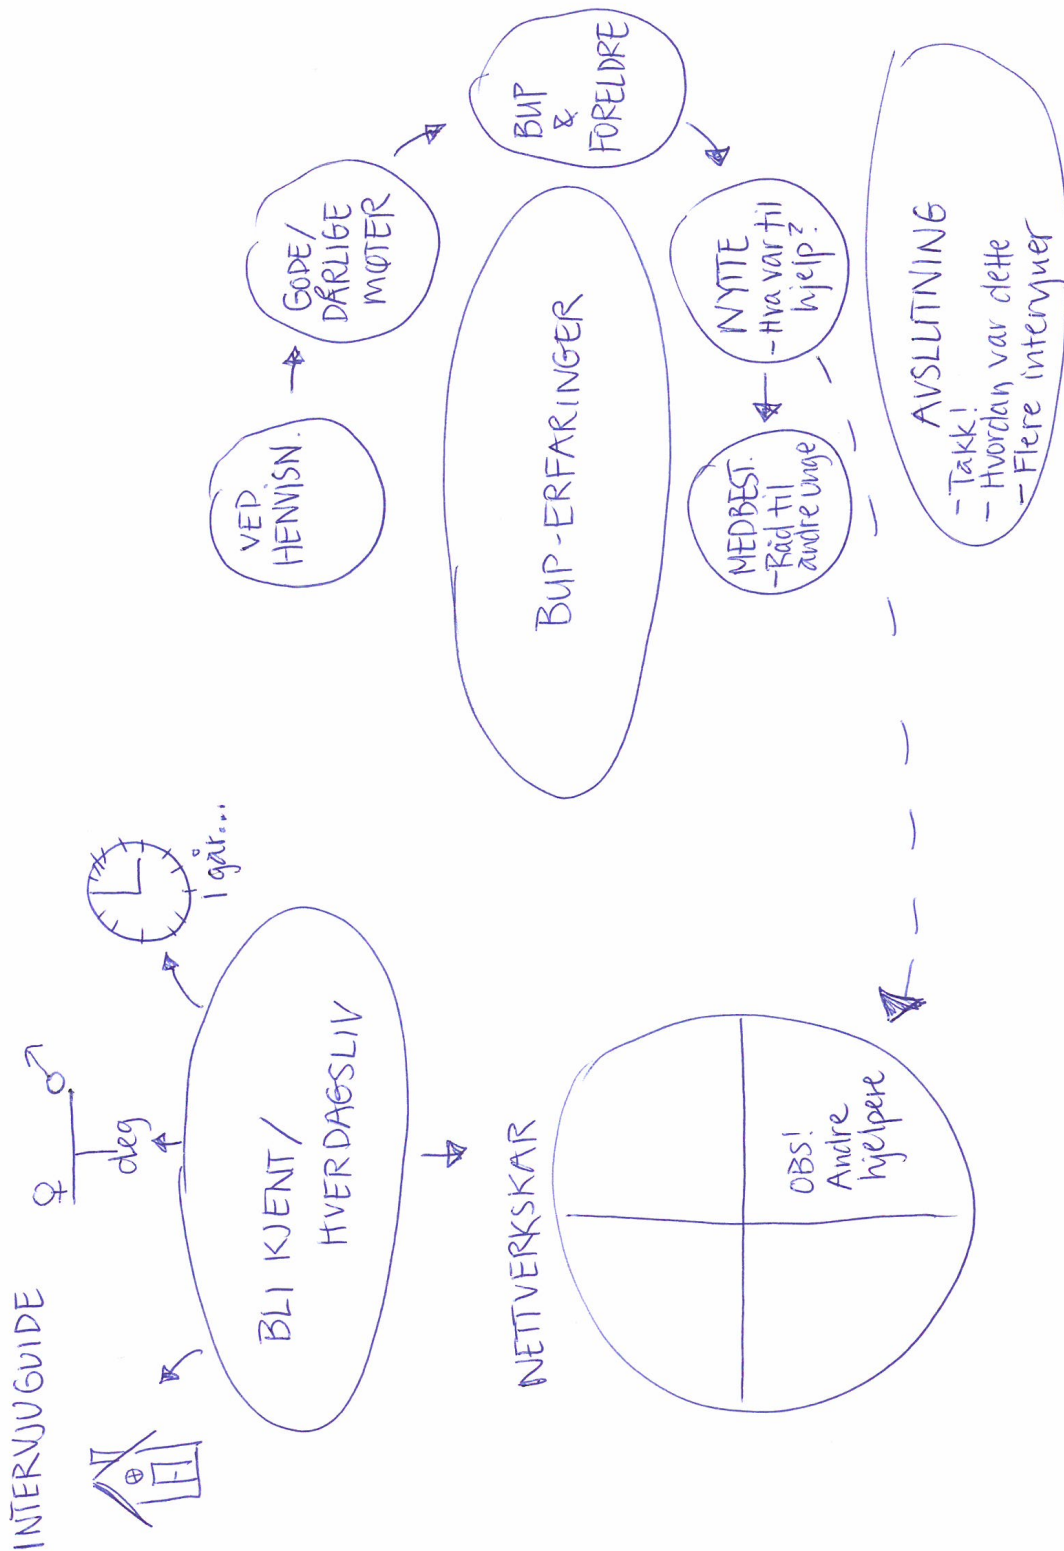 INTERVJUGUIDE
♀ ♂
deg
I går...
BLI KJENT/
HVERDAGSLIV
NETTVERKSKAR
OBS!
Andre
hjelpere
VED
HENVISN.
GODE/
DÅRLIGE
MØTER
BUP
&
FORELDRE
BUP-ERFARINGER
NYTTE
- Hva var til
hjelp?
MEDBEST.
- Råd til
andre unge
AVSLUTNING
- Takk!
- Hvordan var dette
- Flere intervjuer